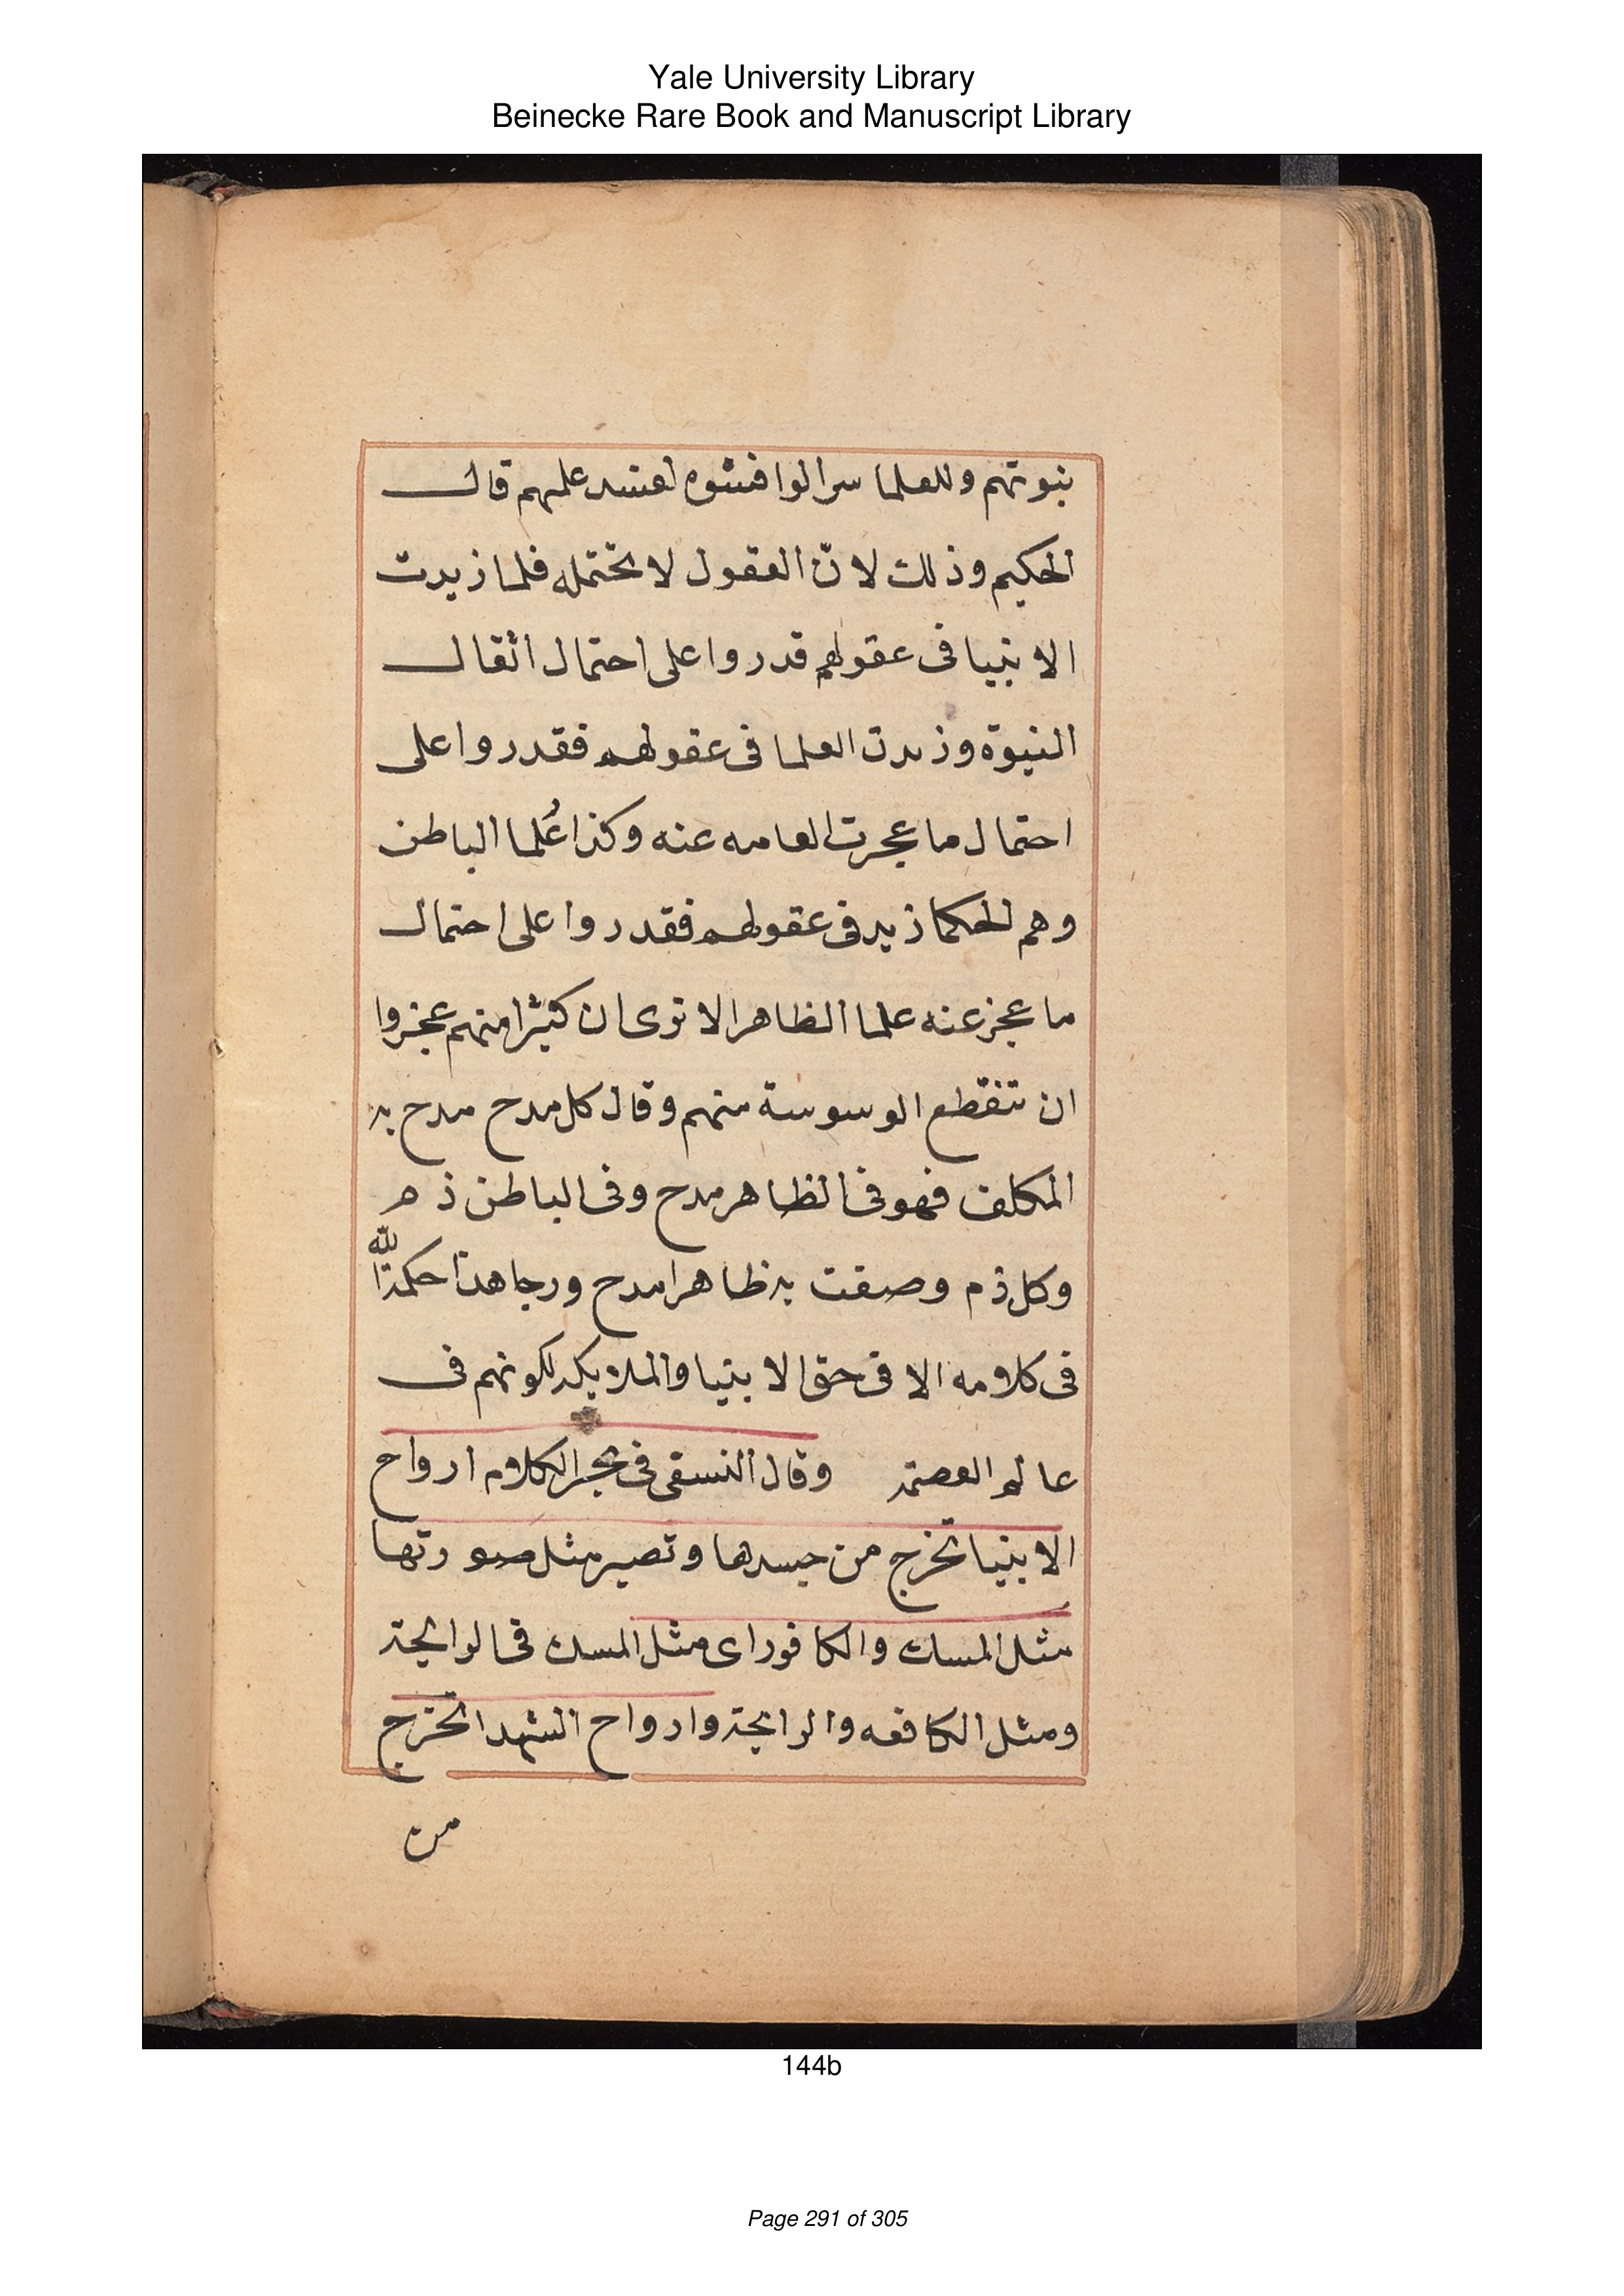 Yale University Library
Beinecke Rare Book and Manuscript Library
نبوتهم وللعلما سرا لوافشوه لفسد علمهم قال
الحكيم وذلك لانّ العقول لا تحتمله فلما زيدت
الانبيا فى عقولهم قدروا على احتمال اثقال
النبوة وزيدت العلما فى عقولهم فقدروا على
احتمال ما عجزت العامه عنه وكذا عُلما الباطن
وهم الحكما زيد فى عقولهم فقدروا على احتمال
ما عجز عنه علما الظاهر الا ترى ان كثيرا منهم عجزوا
ان تنقطع الوسوسة منهم وقال كل مدح مدح به
المكلف فهو فى الظاهر مدح وفى الباطن ذم
وكل ذم وصفت به ظاهرا مدح ورجا هذا حكمة الله
فى كلامه الا فى حق الانبيا والملايكه لكونهم فى
عالم العصمة وقال النسفى فى بحر الكلام ارواح
الانبيا تخرج من جسدها وتصير مثل صورتها
مثل المسك والكافور اى مثل المسك فى الرايحة
ومثل الكافعه والرايحة وارواح الشهدا تخرج
من
144b
Page 291 of 305